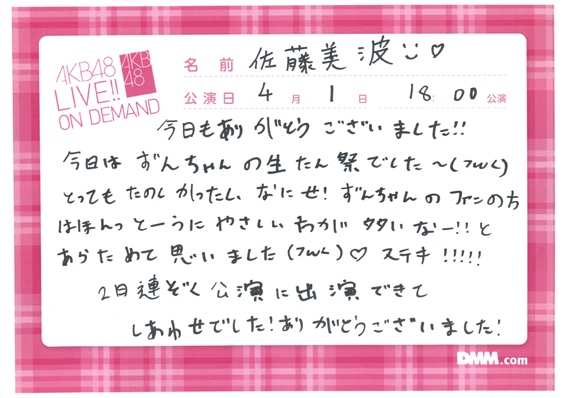 AKB48
LIVE!!
ON DEMAND
AKB
48
名前 佐藤美波
公演日 4月1日 18:00公演
今日もありがとうございました!!
今日は ずんちゃんの生たん祭でした〜(πωπ)
とっても たのしかったし、なにせ! ずんちゃんの ファンの方
はほんっとーうに やさしい が 多いなー!! と
あらためて 思いました (πωπ)♡ ステキ!!!!!
2日連ぞく 公演に出演できて
しあわせでした! ありがとうございました!
DMM.com